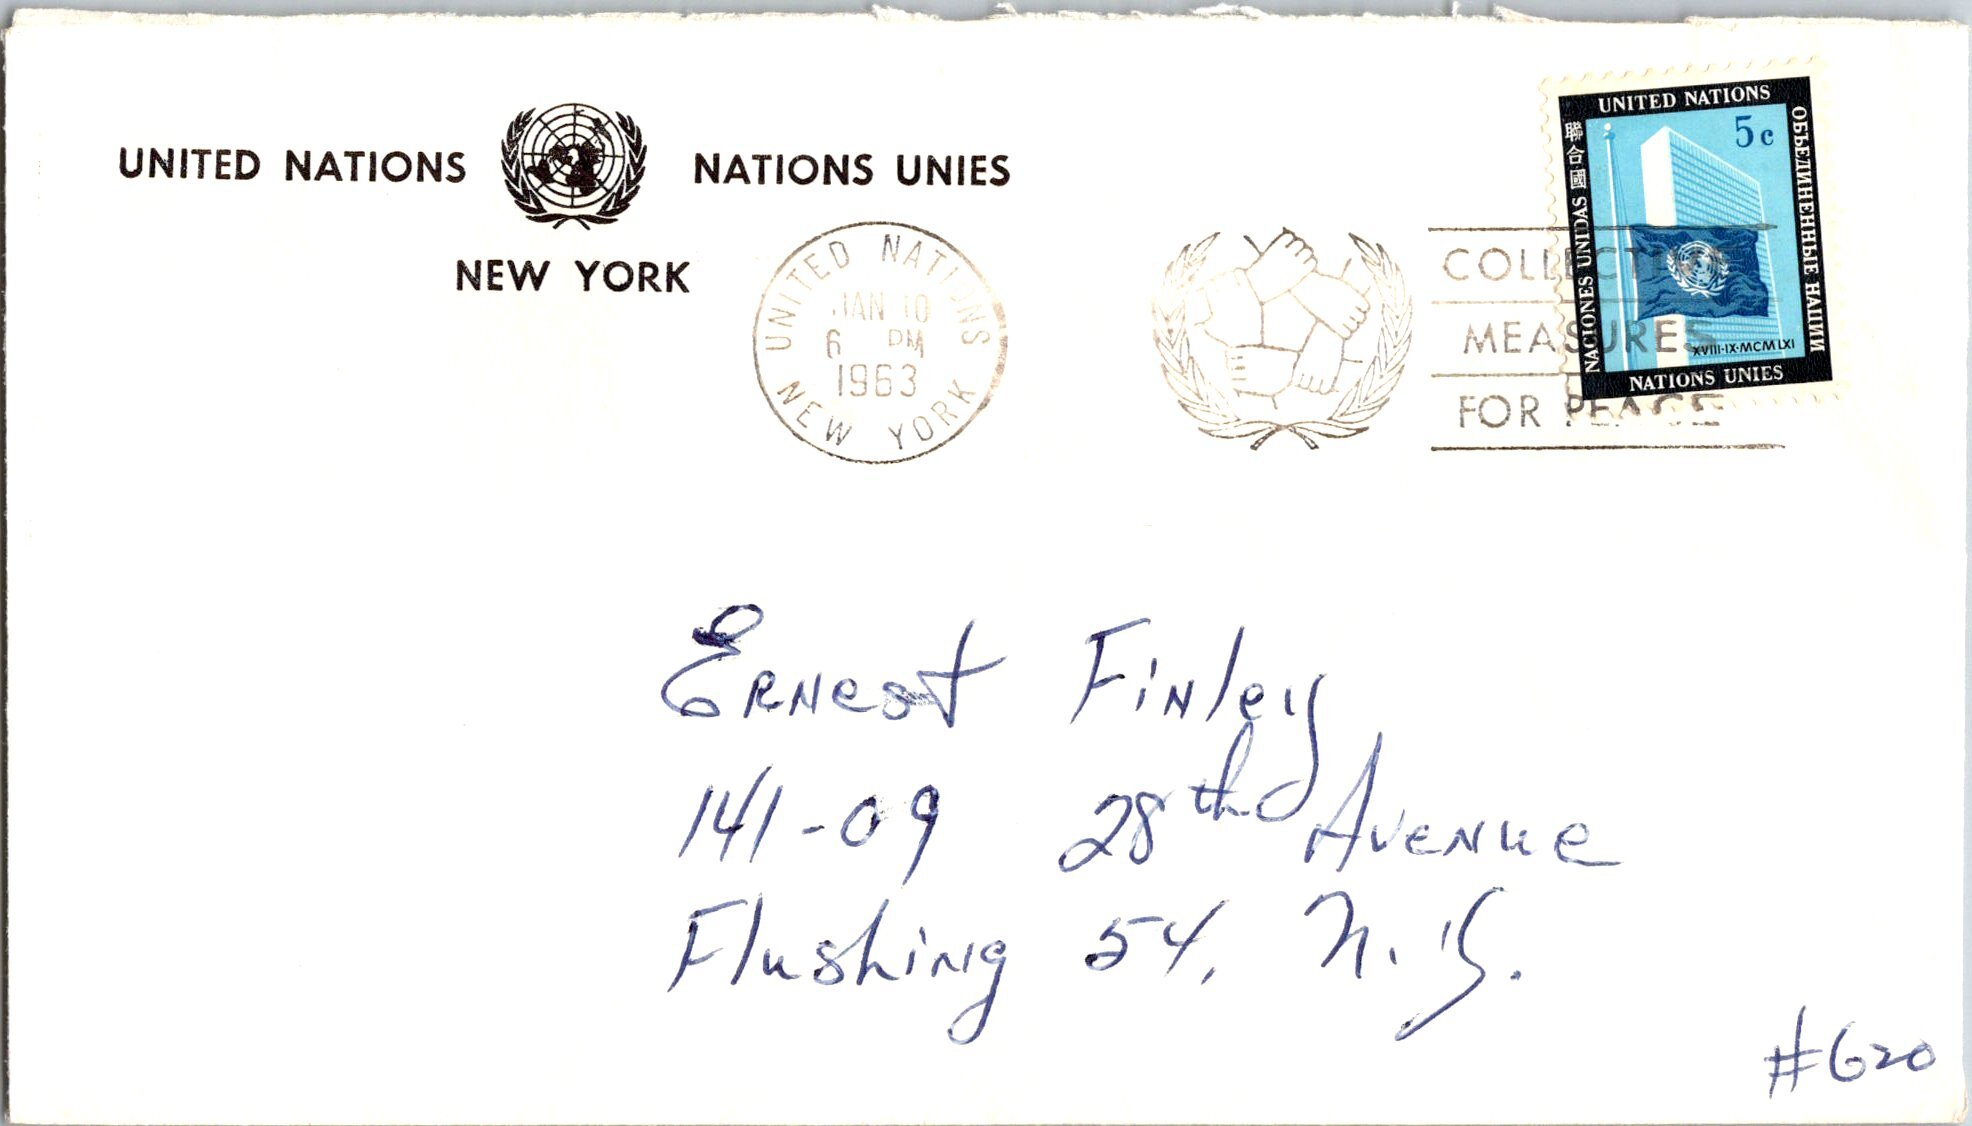 UNITED NATIONS NATIONS UNIES
NEW YORK
UNITED NATIONS
JAN 10
6 PM
1963
NEW YORK
COLLECTIVE
MEASURES
FOR PEACE
UNITED NATIONS
5c
聯合國
NACIONES UNIDAS
ОБЪЕДИНЕННЫЕ НАЦИИ
XVIII·IX·MCMLXI
NATIONS UNIES
Ernest Finley
141-09 28th Avenue
Flushing 54, N.Y.
#G20